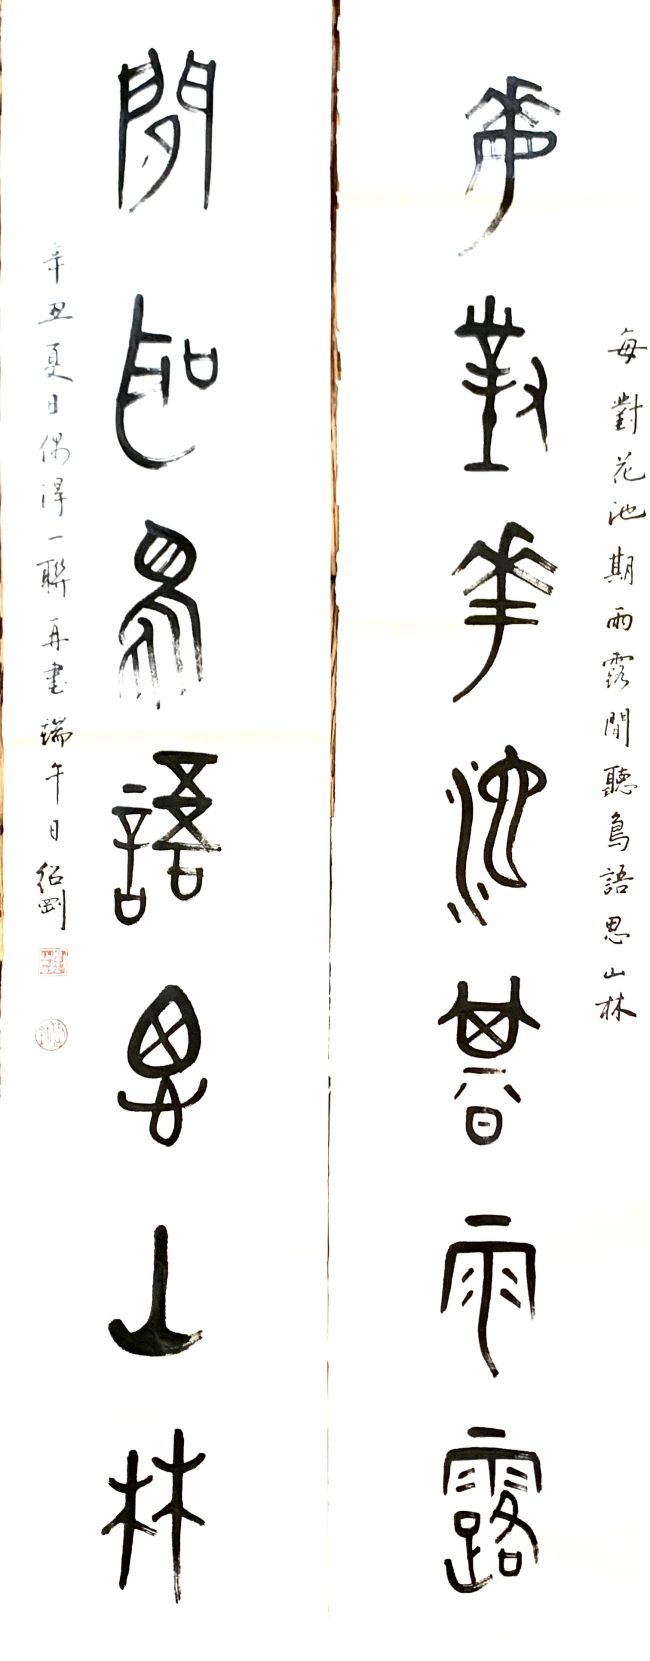 每對花池期雨露
閒聽鳥語思山林
每對花池期雨露閒聽鳥語思山林
辛丑夏日偶得一聯再書端午日紹剛